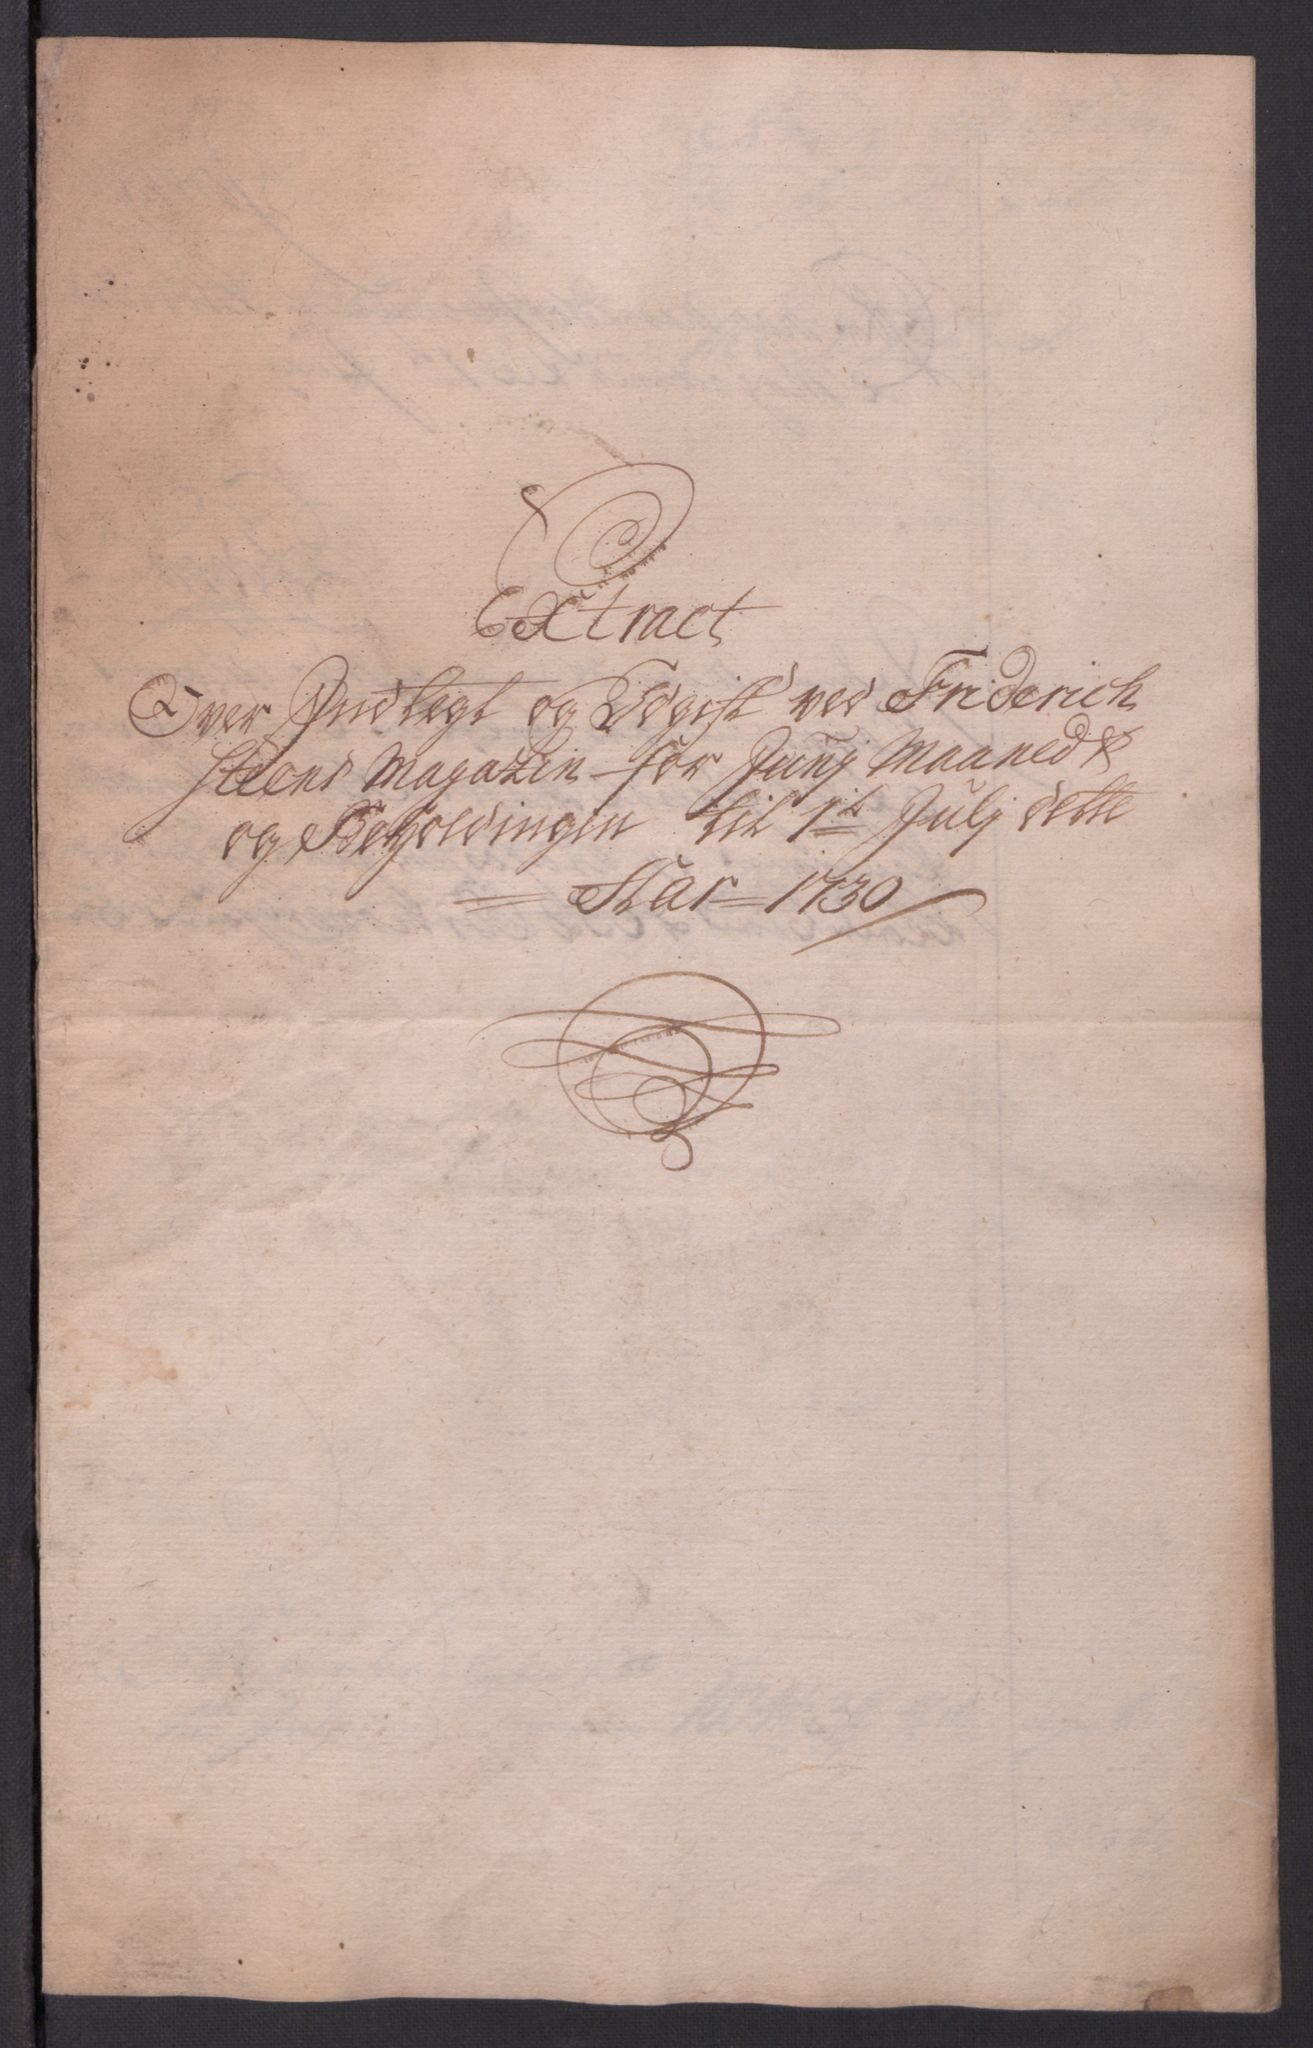 Extract
Over Indtegt og Udgift ved Friderich
steens Magazin for Junj Maaned
og Beholdingen til 1te Julj dette
Aar 1730